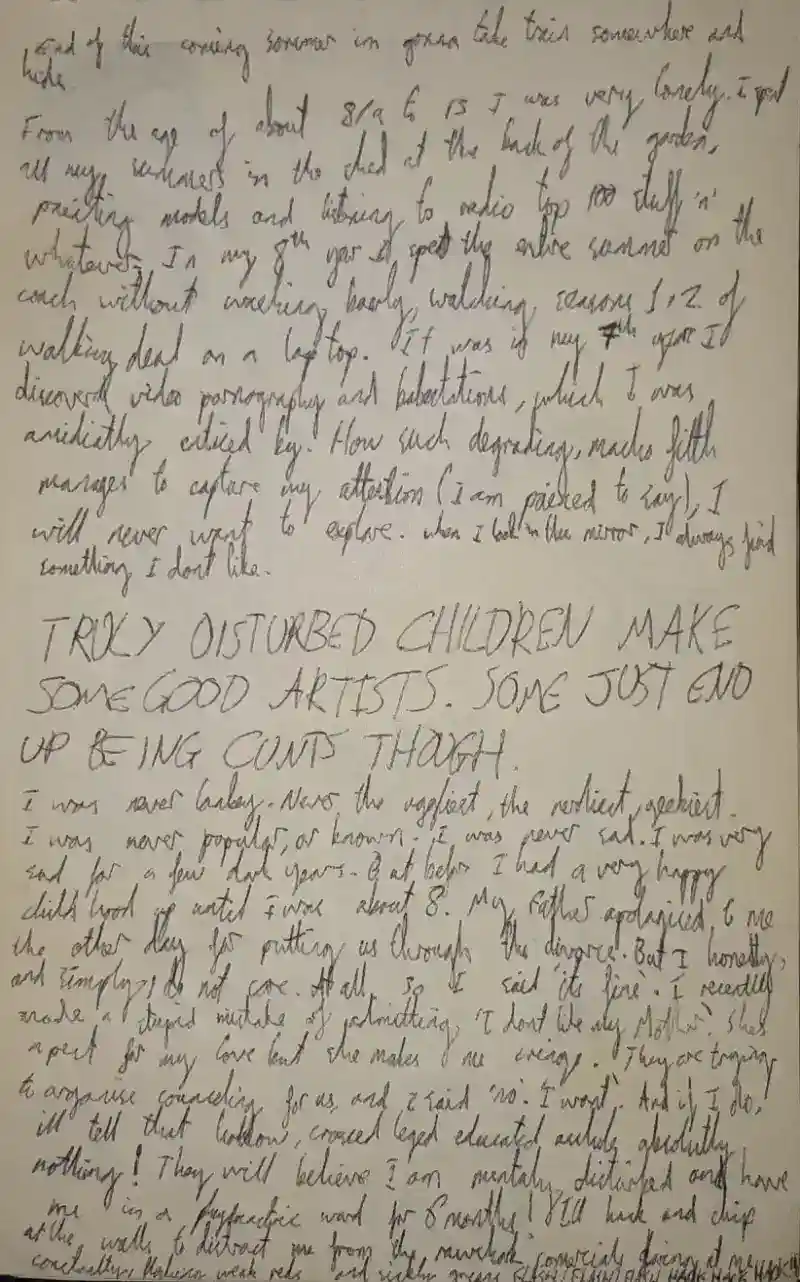 End of this coming sommer im gonna take train somewhere and
hide.
From the age of about 8/9 to 13 I was very lonely. I spent
all my summers in the shed at the back of the garden,
painting models and listening to radio top 100 stuff 'n'
whatever. In my 8th year I spent the entire summer on the
couch without washing, barely, watching seasons 1 & 2 of
walking dead on a laptop. It was in my 7th year I
discoverd video pornography and, which I was
amidiatly enticed by. How such degrading, macho filth
manages to capture my attention (I am pained to say), I
will never want to explore. when I look in the mirror, I always find
something I dont like.
TRULY DISTURBED CHILDREN MAKE
SOME GOOD ARTISTS. SOME JUST END
UP BEING CUNTS THOUGH.
I was never. Never the uggliest, the nerdiest, geekiest.
I was never popular, or known. I was never sad. I was very
sad for a few dark years. But before I had a very happy
child hood up until I was about 8. My Father apologised to me
the other day for putting us through the divorce. But I honestly,
and simply, do not care. At all. so I said 'its fine'. I recently
made a stupid mistake of admitting, 'I dont like my Mother'. Shes
apart for my love but she makes me cringe. They are trying
to organise counceling for us, and I said 'no. I wont'. And if I do,
ill tell that, crossed leged educated asshole absolutly
nothing! They will believe I am mentaly disturbed and have
me in a ward for 6 months! I'll hack and chip
at the walls to distract me from the comercials at me